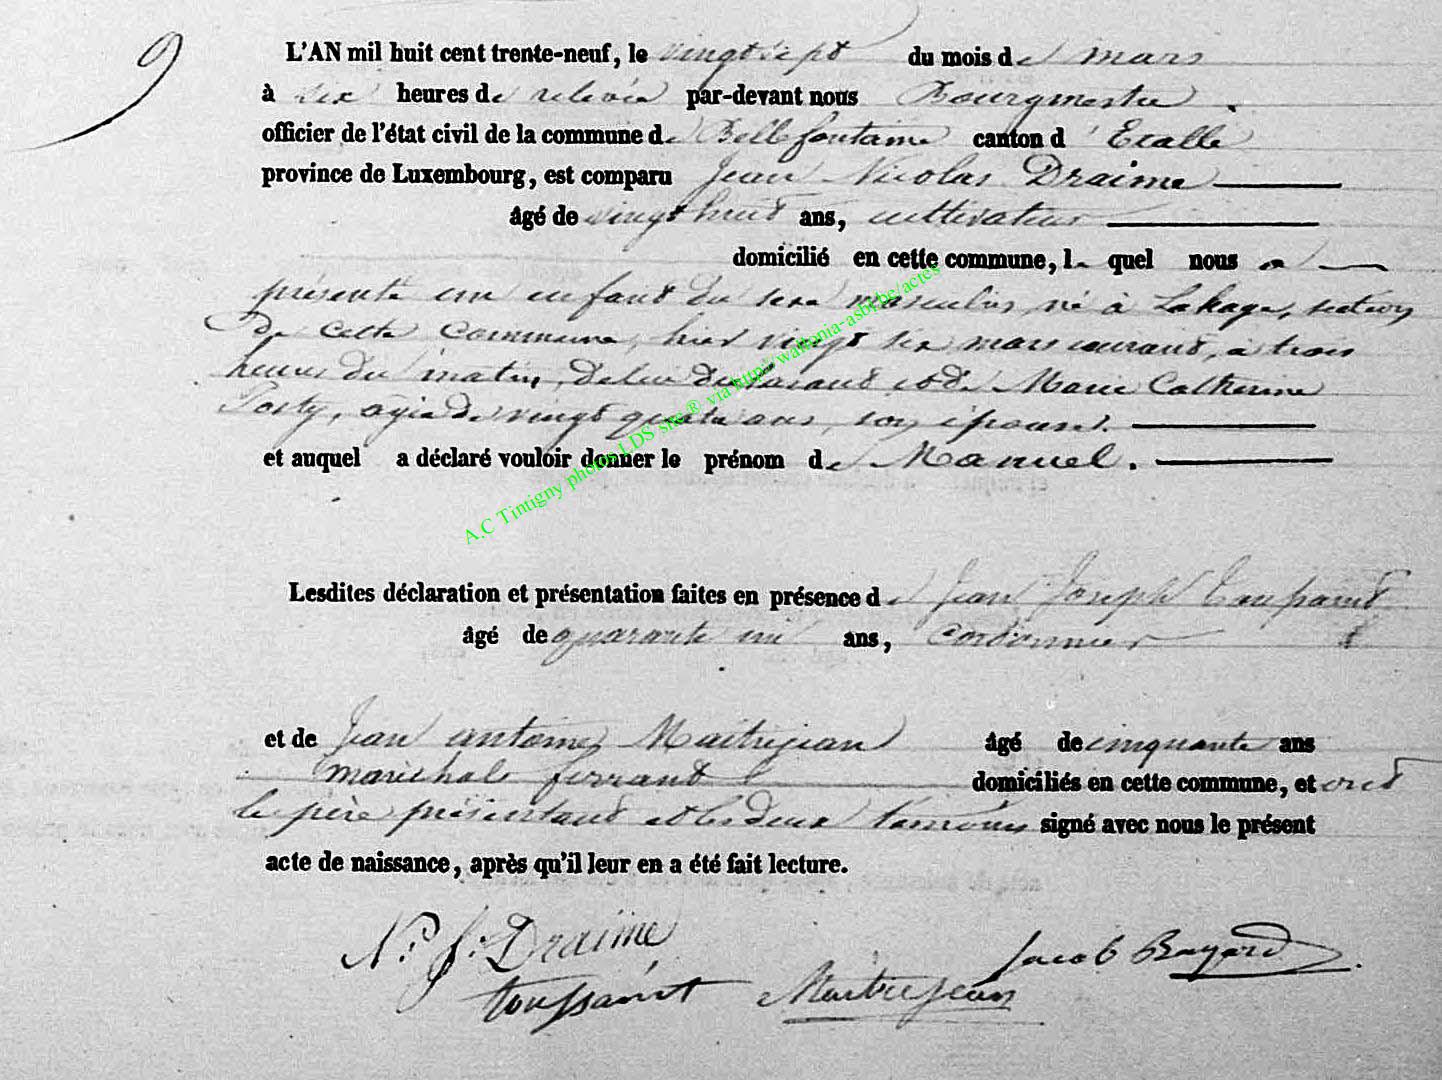 9
L'AN mil huit cent trente-neuf, le vingt sept du mois de mars
à six heures de relevée par-devant nous Bourgmestre
officier de l'état civil de la commune de Bellefontaine canton d'Etalle
province de Luxembourg, est comparu Jean Nicolas Draime
âgé de vingt huit ans, cultivateur
domicilié en cette commune, lequel nous a
présenté un enfant du sexe masculin, né à Lahage, section
de cette commune, hier vingt six mars courant, à trois
heures du matin, de lui déclarant et de Marie Catherine
agée de vingt quatre ans, son épouse.
et auquel a déclaré vouloir donner le prénom de Manuel.
Lesdites déclaration et présentation faites en présence de Jean Joseph Toussaint
âgé de quarante un ans, cordonnier
et de Jean antoine Maitrejean âgé de cinquante ans
maréchal ferrant domiciliés en cette commune, et ont
le père présentant et les deux témoins signé avec nous le présent
acte de naissance, après qu'il leur en a été fait lecture.
N. J. Draime
Jacob Bayard
toussaint Maitrejean
A.C Tintigny photos LDS site ® via http://wallonia-asbl.be/actes